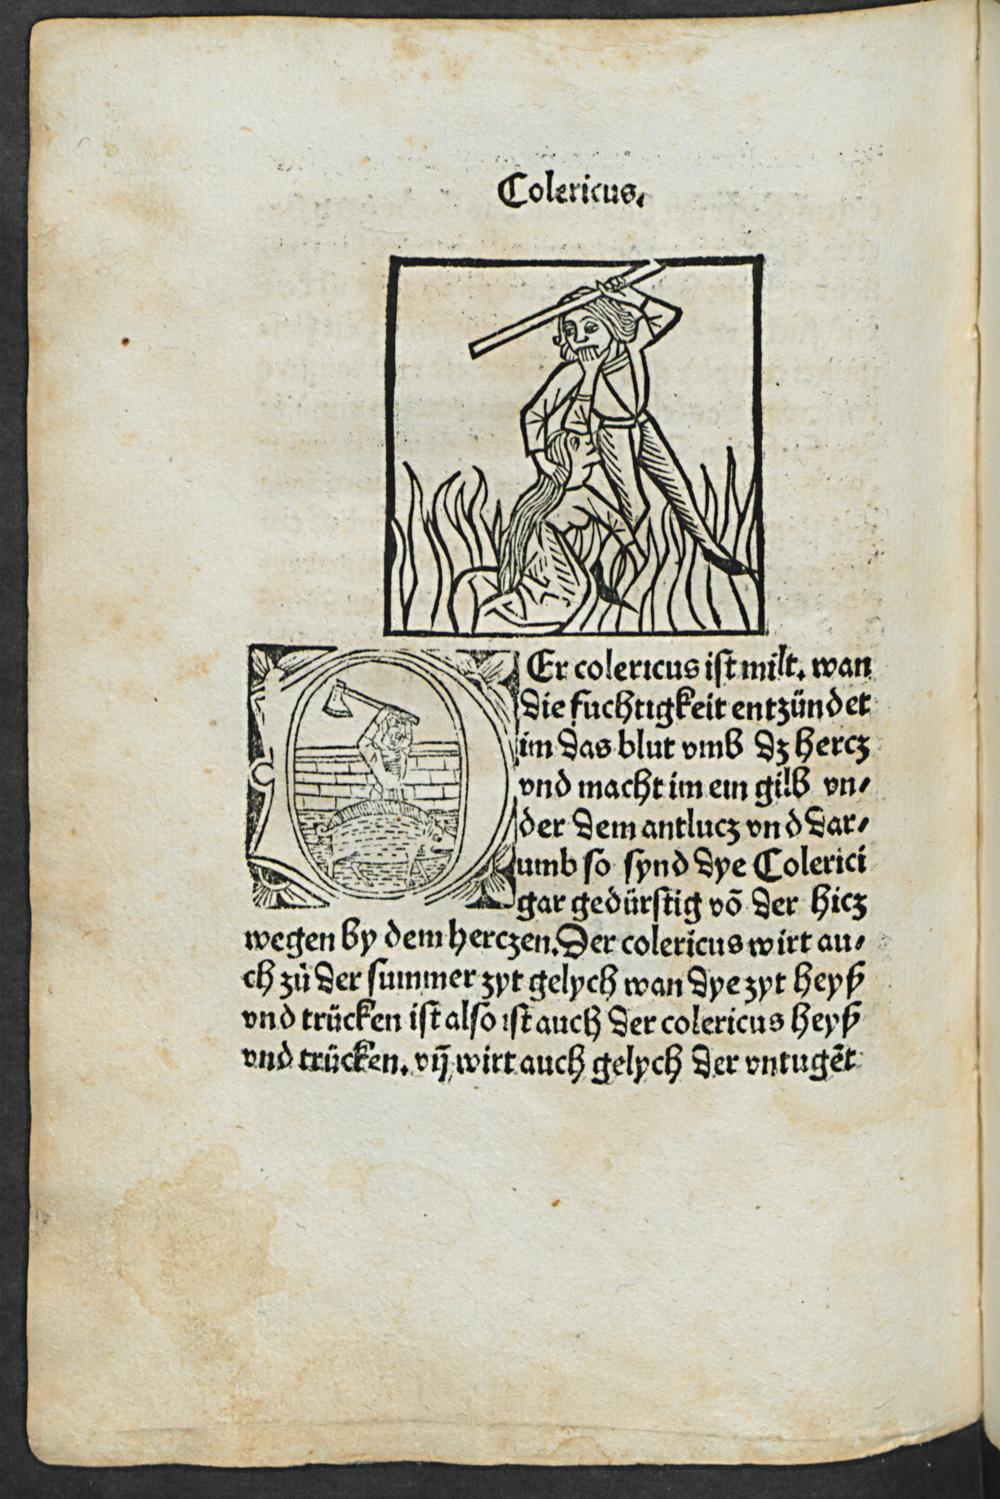 Colericus.
DEr colericus ist milt. wan
die fuchtigkeit entzündet
im das blut vmb dz hercz
vnd macht im ein gilb vn⸗
der dem antlucz vnd dar⸗
umb so synd dye Colerici
gar gedürstig võ der hicz
wegen by dem herczen. Der colericus wirt au⸗
ch zů der summer zyt gelych wan dye zyt heyß
vnd trücken ist also ist auch der colericus heyß
vnd trücken. vñ wirt auch gelych der vntugẽt